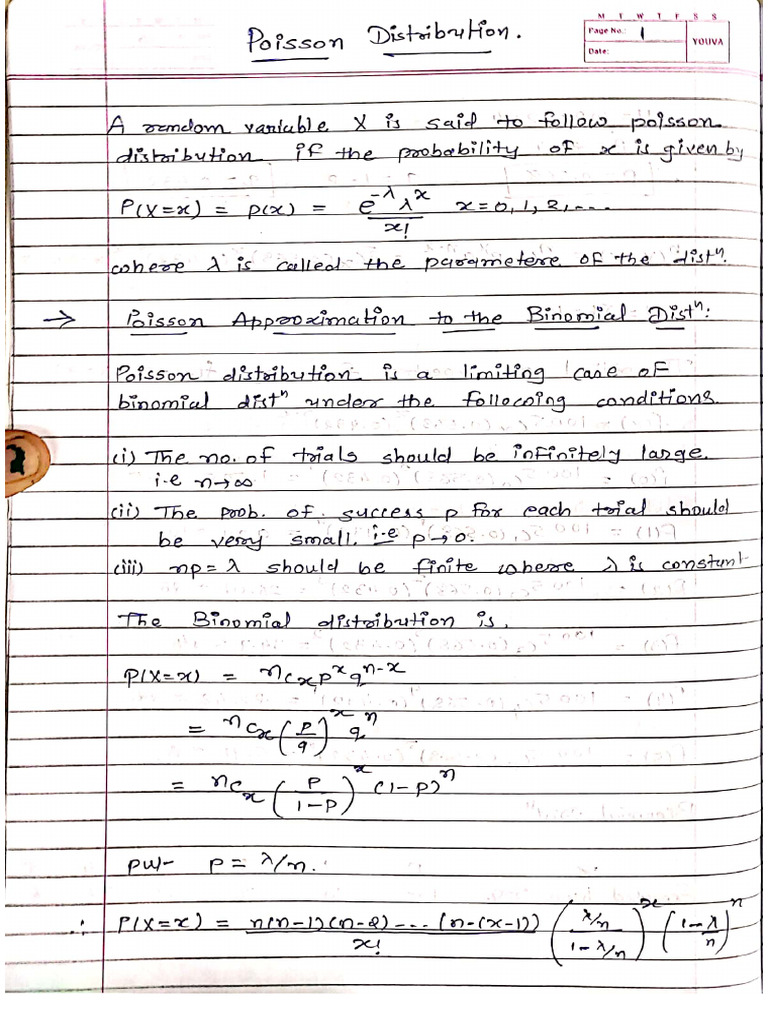 Poisson Distribution.
M T W T F S S
Page No.: 1
Date:
YOUVA
A random variable X is said to follow poisson
distribution if the probability of x is given by
P(X=x) = p(x) = e^{-λ} λ^x / x!   x=0,1,2,....
where λ is called the parametere of the distⁿ.
→ Poisson Approximation to the Binomial Distⁿ:
Poisson distribution is a limiting case of
binomial distⁿ under the following conditions.
(i) The no. of trials should be infinitely large.
i.e n→∞
(ii) The prob. of success p for each trial should
be very small. i.e p→0.
(iii) np=λ should be finite where λ is constant
The Binomial distribution is.
P(X=x) = ⁿC_x p^x q^{n-x}
= ⁿC_x (p/q)^x q^n
= ⁿC_x (p/(1-p))^x (1-p)^n
put p = λ/n.
∴ P(X=x) = n(n-1)(n-2)----(n-(x-1)) / x! ((λ/n)/(1-λ/n))^x (1-λ/n)^n